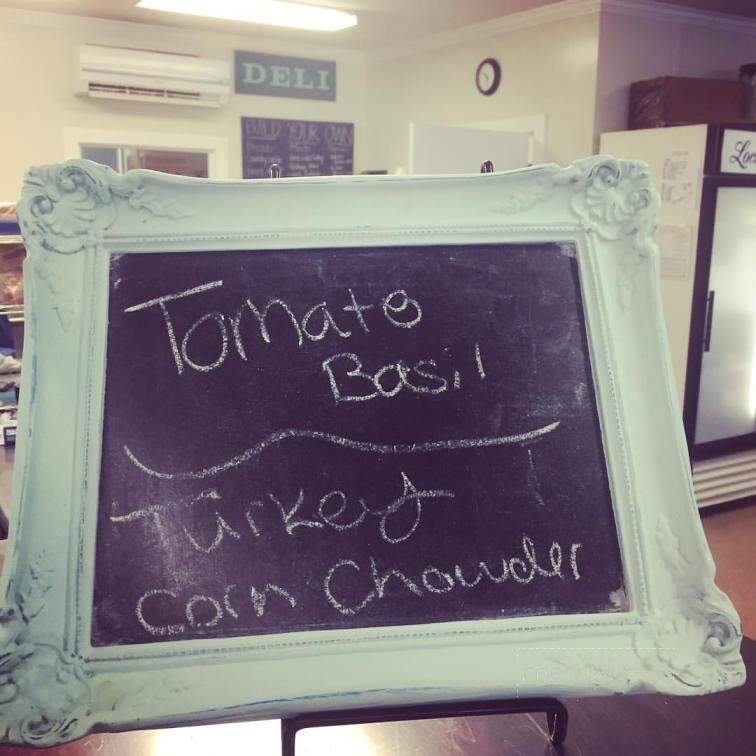 DELI
BUILD YOUR OWN
Tomato
Basil
Turkey
Corn Chowder